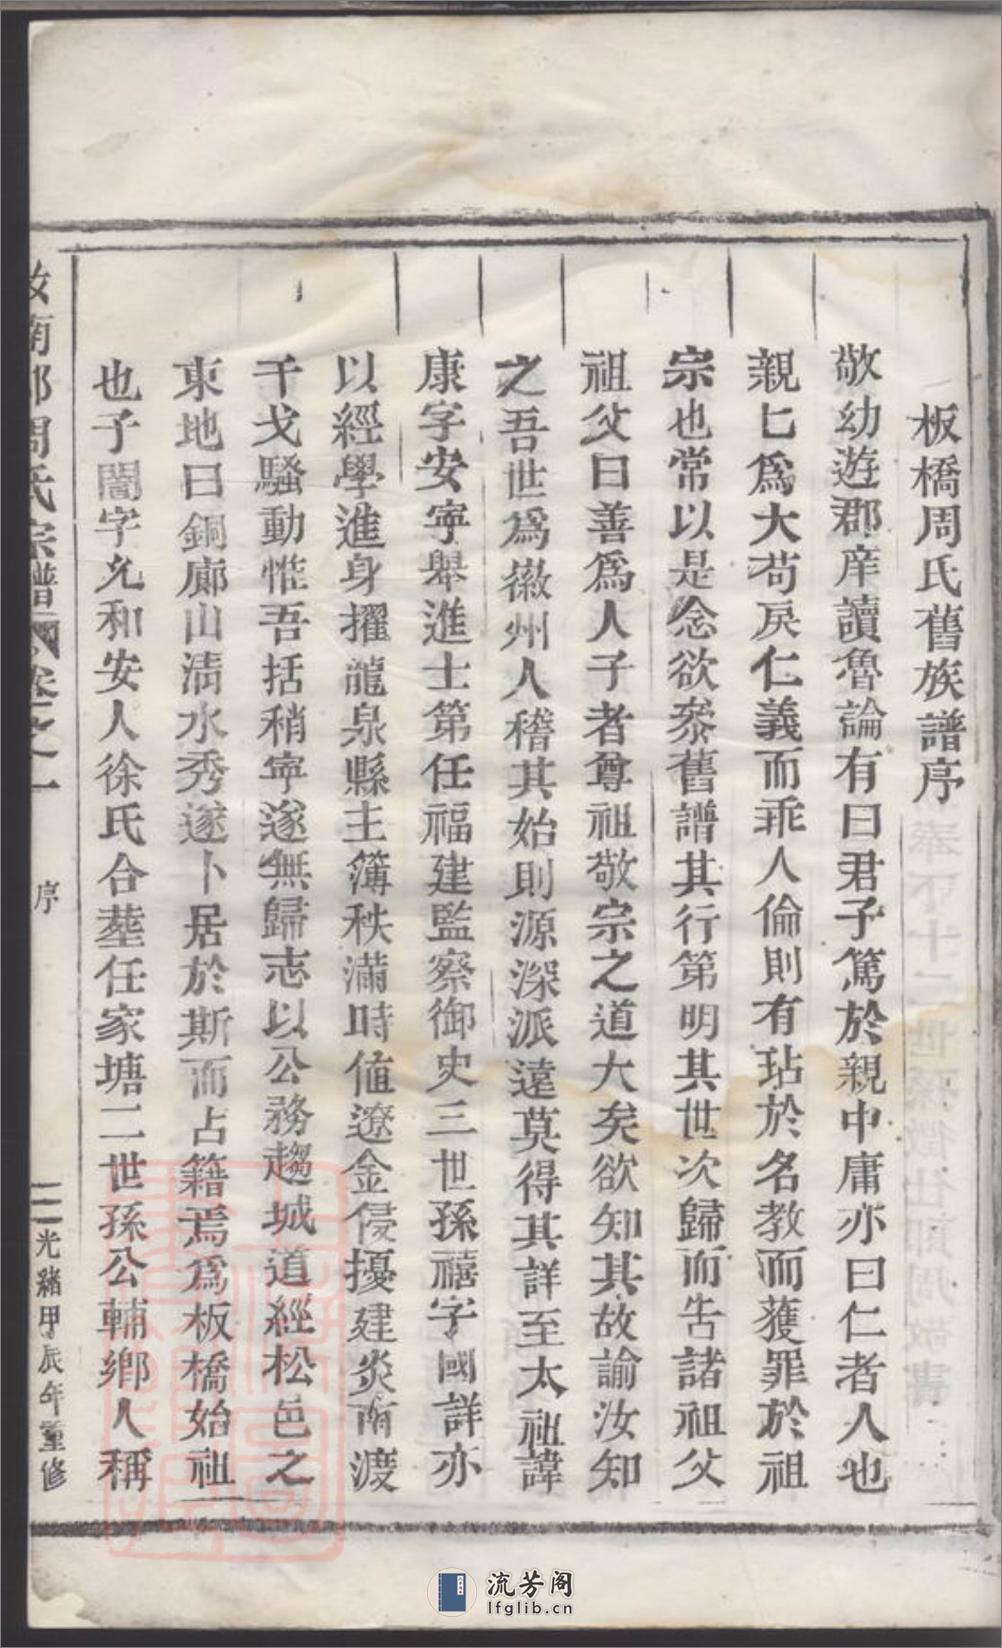 板橋周氏舊族譜序
敬幼遊郡庠讀魯論有曰君子篤於親中庸亦曰仁者人也
親匕爲大苟戾仁義而乖人倫則有玷於名教而獲罪於祖
宗也常以是念欲叅舊譜其行第明其世次歸而告諸祖父
祖父曰善爲人子者尊祖敬宗之道大矣欲知其故諭汝知
之吾世爲徽州人稽其始則源深派遠莫得其詳至太祖諱
康字安寜舉進士第任福建監察御史三世孫禧字國詳亦
以經學進身擢龍泉縣主簿秩滿時值遼金侵擾建炎南渡
干戈騷動惟吾括稍寜遂無歸志以公務趨城道經松邑之
東地曰銅廊山清水秀遂卜居於斯而占籍焉爲板橋始祖
也子闇字允和安人徐氏合塟任家塘二世孫公輔鄉人稱
汝南郡周氏宗譜 卷之一 序 二 光緒甲辰年重修
流芳阁
lfglib.cn